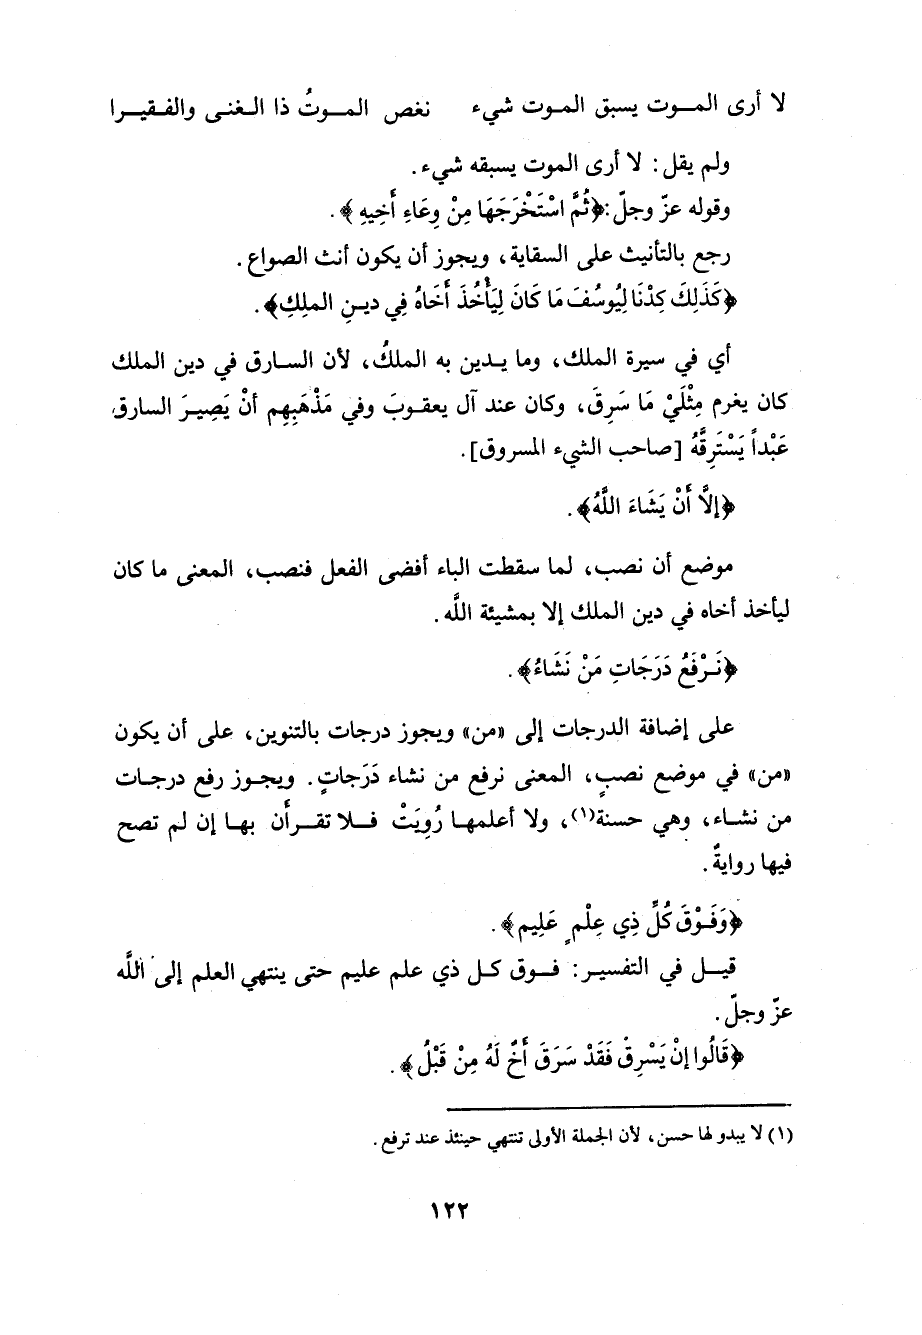 لا أرى المـوت يسبق المـوت شيء نغص المـوتُ ذا الـغنـى والفـقيـرا
ولم يقل: لا أرى الموت يسبقه شيء.
وقوله عزّ وجلّ: ﴿ثُمَّ اسْتَخْرَجَهَا مِنْ وِعَاءِ أَخِيهِ﴾.
رجع بالتأنيث على السقاية، ويجوز أن يكون أنث الصواع.
﴿كَذَلِكَ كِدْنَا لِيُوسُفَ مَا كَانَ لِيَأْخُذَ أَخَاهُ فِي دِيـنِ الملِكِ﴾.
أي في سيرة الملك، وما يـدين به الملكُ، لأن السـارق في دين الملك
كان يغرم مِثْلَيْ مَا سَرِقَ، وكان عند آل يعقـوبَ وفي مَذْهَبِهِم أنْ يَصِيـرَ السارق
عَبْداً يَسْتَرِقَّهُ [صاحب الشيء المسروق].
﴿إلاَّ أَنْ يَشَاءَ اللَّهُ﴾.
موضع أن نصب، لما سقطت الباء أفضى الفعل فنصب، المعنى ما كان
ليأخذ أخاه في دين الملك إلا بمشيئة اللَّه.
﴿نَـرْفَعُ دَرَجَاتِ مَنْ نَشَاءُ﴾.
على إضافة الدرجات إلى «من» ويجوز درجات بالتنوين، على أن يكون
«من» في موضع نصبٍ، المعنى نرفع من نشاء دَرَجاتٍ. ويجـوز رفع درجـات
من نشـاء، وهي حسنة(١)، ولا أعلمهـا رُوِيَتْ فـلا تقـرأَن بهـا إن لم تصح
فيها روايةٌ.
﴿وَفَوْقَ كُلِّ ذِي عِلْمٍ عَلِيم﴾.
قيـل في التفسيـر: فـوق كـل ذي علم عليم حتى ينتهي العلم إلى اللَّه
عزّ وجلّ.
﴿قَالُوا إنْ يَسْرِقْ فَقَدْ سَرَقَ أَخٌ لَهُ مِنْ قَبْلُ﴾.
(١) لا يبدو لها حسن، لأن الجملة الأولى تنتهي حينئذ عند ترفع.
١٢٢